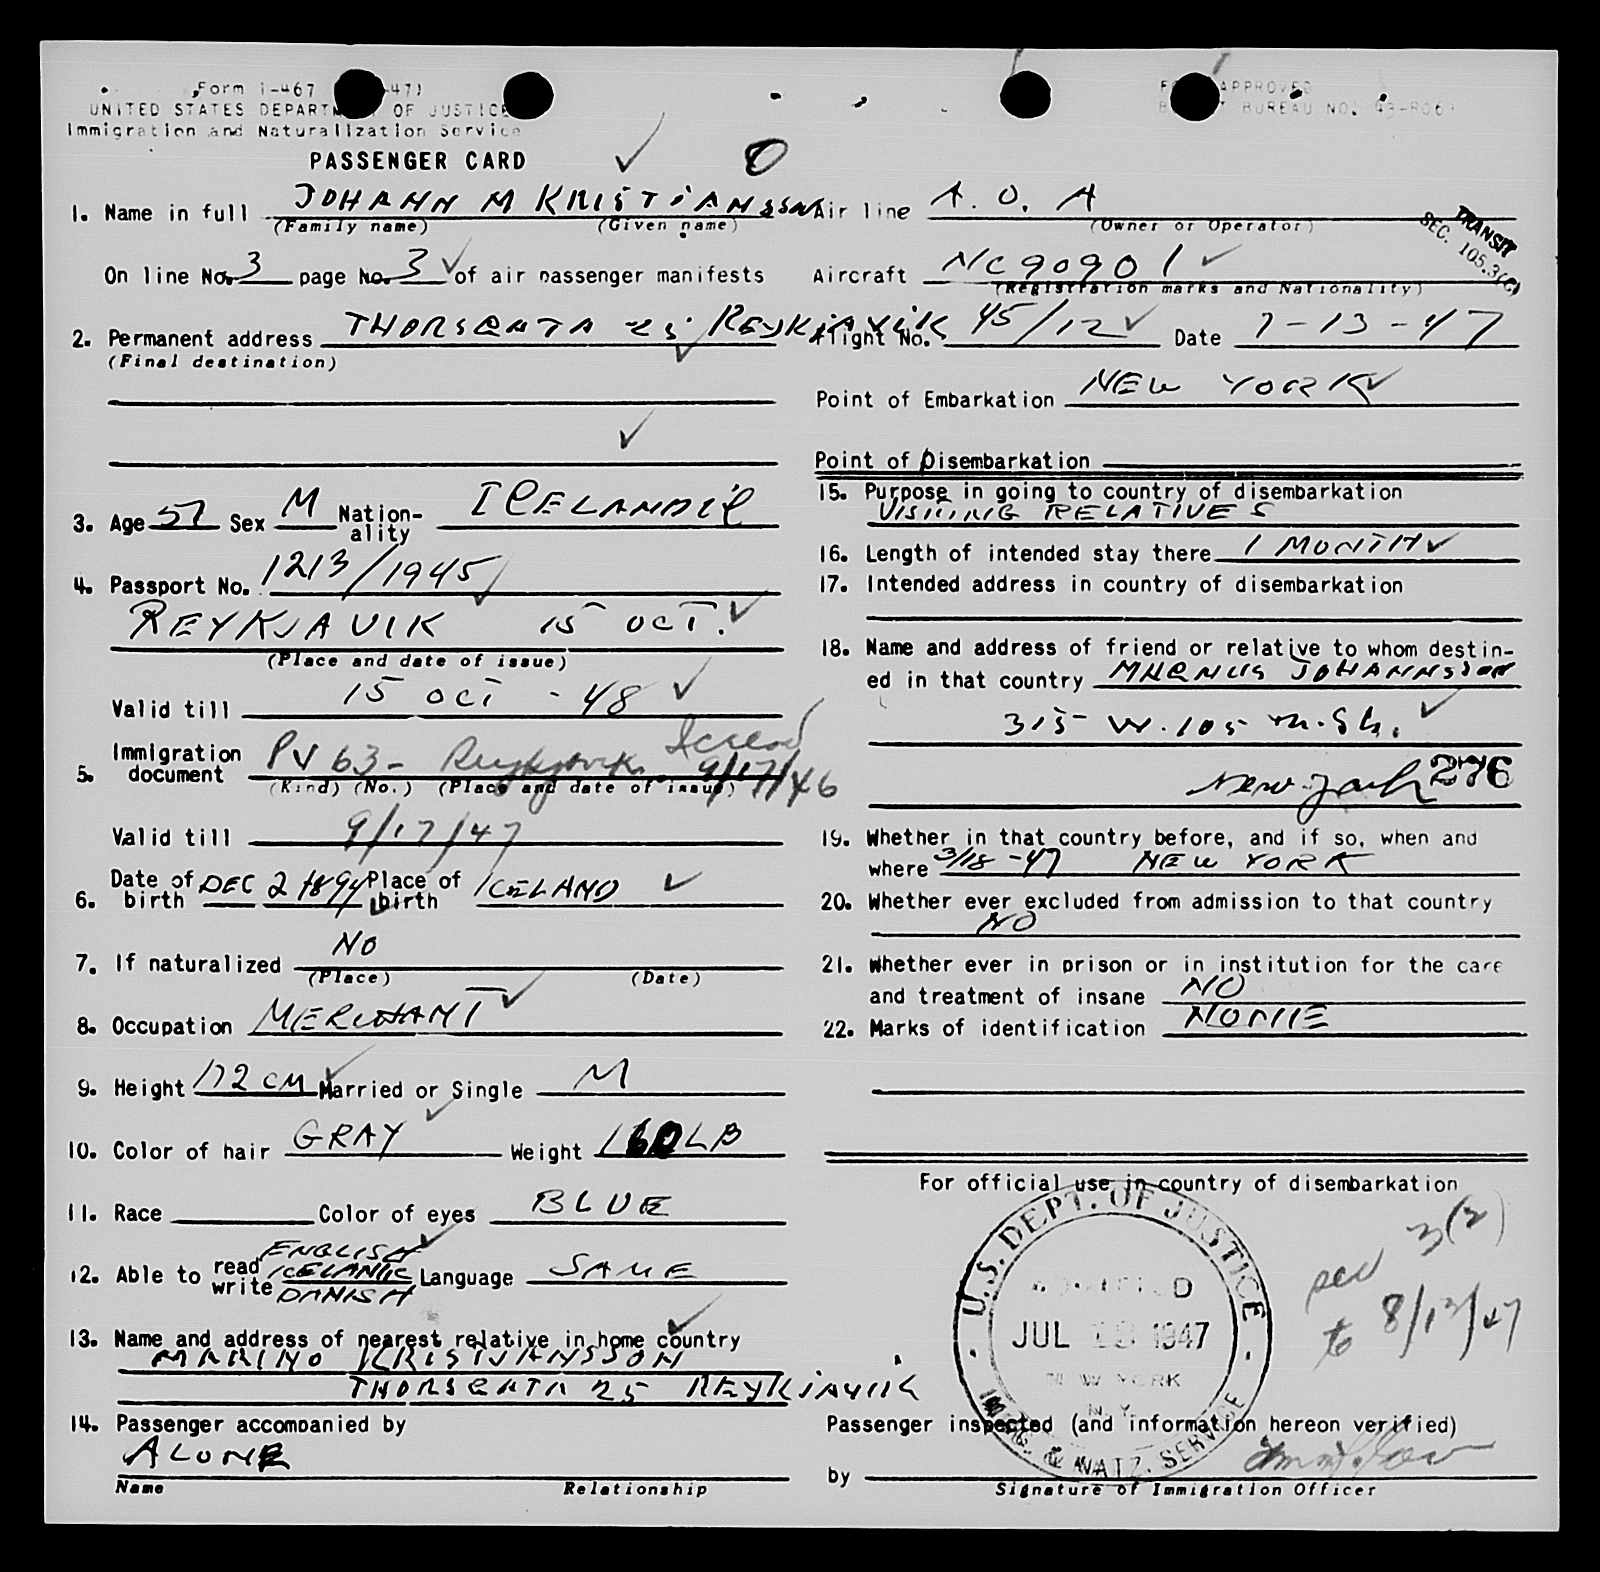 Form I-467 47)
UNITED STATES DEPARTMENT OF JUSTICE
Immigration and Naturalization Service
PASSENGER CARD
O
APPROVED
BUREAU NO.
1. Name in full JOHANN M KRISTIANSSON
(Family name) (Given name)
On line No. 3 page No. 3 of air passenger manifests
2. Permanent address REYKJAVIK
(Final destination)
3. Age Sex M Nationality ICELANDIC
4. Passport No. 1213/1945
REYKJAVIK 15 OCT.
(Place and date of issue)
Valid till 15 OCT - 48
5. Immigration document PV 63 - Reykjavik Iceland 9/17/46
(Kind) (No.) (Place and date of issue)
Valid till 9/17/47
6. Date of birth DEC 2 1894 Place of birth ICELAND
7. If naturalized NO
(Place) (Date)
8. Occupation MERCHANT
9. Height 172 CM Married or Single M
10. Color of hair GRAY Weight 160 LB
11. Race Color of eyes BLUE
12. Able to read write ENGLISH ICELANDIC DANISH Language SAME
13. Name and address of nearest relative in home country
KRISTJANSSON
25 REYKJAVIK
14. Passenger accompanied by
ALONE
Name Relationship
Air line A. O. A
(Owner or Operator)
TRANSIT
SEC. 105.3(C)
Aircraft NC90901
(Registration marks and Nationality)
Flight No. 45/12 Date 7-13-47
Point of Embarkation NEW YORK
Point of Disembarkation
15. Purpose in going to country of disembarkation
VISITING RELATIVES
16. Length of intended stay there 1 MONTH
17. Intended address in country of disembarkation
18. Name and address of friend or relative to whom destin-
ed in that country MAGNUS JOHANNSSON
315 W. 105 th. St.
New York 276
19. Whether in that country before, and if so, when and
where 3/18-47 NEW YORK
20. Whether ever excluded from admission to that country
NO
21. Whether ever in prison or in institution for the care
and treatment of insane NO
22. Marks of identification NONE
For official use in country of disembarkation
U.S. DEPT. OF JUSTICE
ADMITTED
JUL 1947
NEW YORK
N.Y.
IMMIG. & NATZ. SERVICE
3(2)
to 8/13/47
Passenger inspected (and information hereon verified)
by
Signature of Immigration Officer